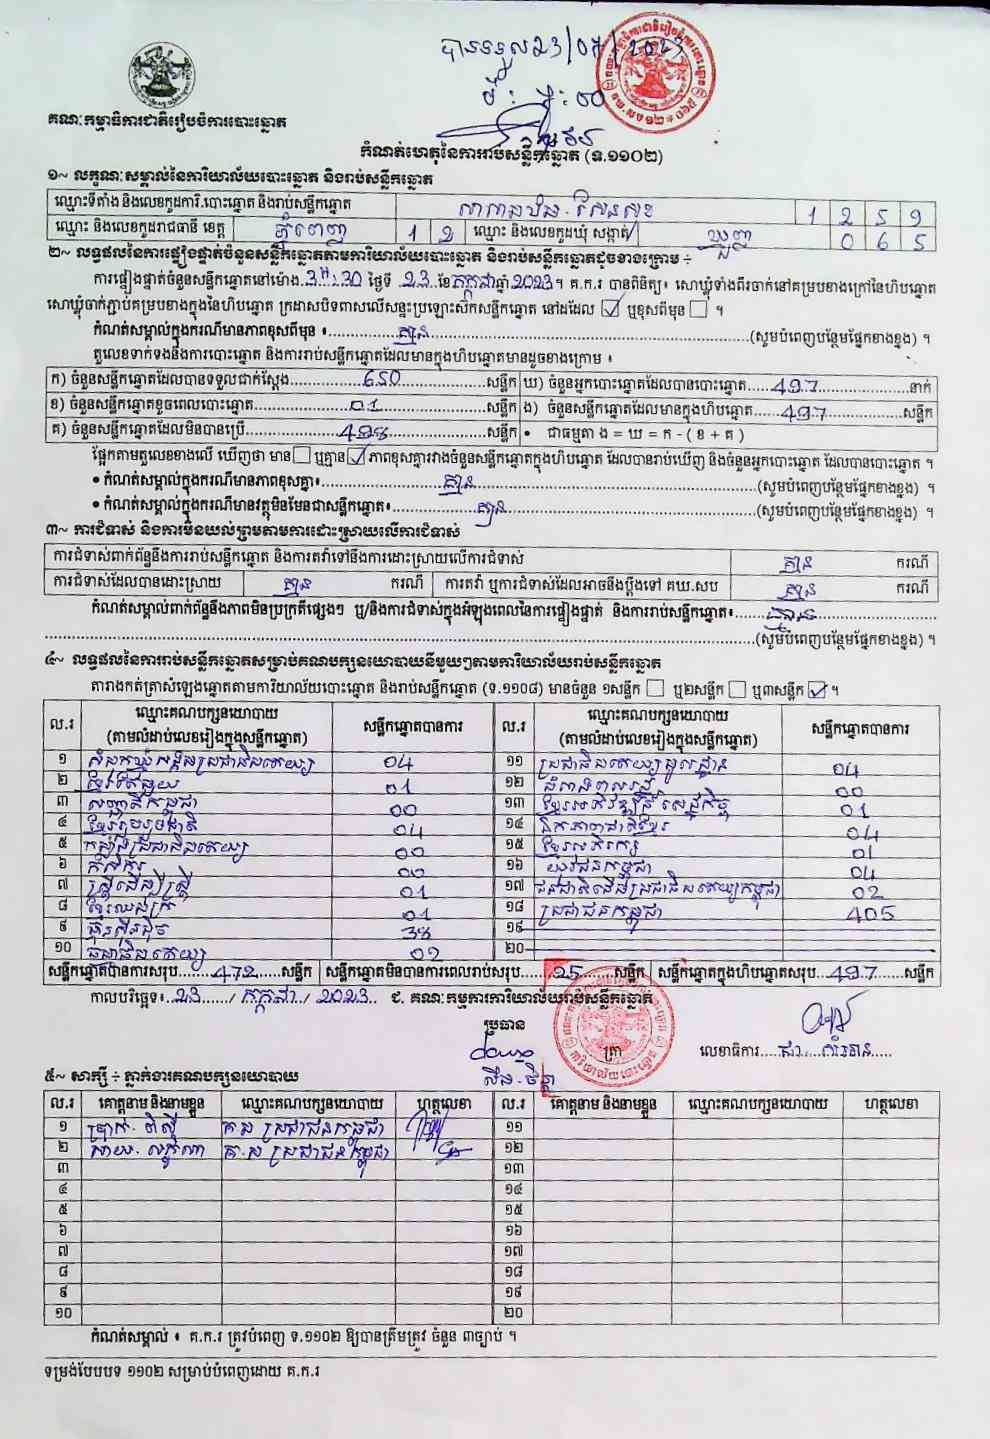 បានទទួល 23/07/2023
គណៈកម្មាធិការជាតិរៀបចំការបោះឆ្នោត
កំណត់ហេតុនៃការរាប់សន្លឹកឆ្នោត (ទ.១១០២)
១~ លក្ខណៈសម្គាល់នៃការិយាល័យបោះឆ្នោត និងរាប់សន្លឹកឆ្នោត
ឈ្មោះទីតាំង និងលេខកូដការិ.បោះឆ្នោត និងរាប់សន្លឹកឆ្នោត សែនសុខ 1 2 5 9
ឈ្មោះ និងលេខកូដរាជធានី ខេត្ត ភ្នំពេញ 1 2 ឈ្មោះ និងលេខកូដឃុំ សង្កាត់ ឃ្មួញ 0 6 5
២~ លទ្ធផលនៃការផ្ទៀងផ្ទាត់ចំនួនសន្លឹកឆ្នោតតាមការិយាល័យបោះឆ្នោត និងរាប់សន្លឹកឆ្នោតដូចខាងក្រោម ÷
ការផ្ទៀងផ្ទាត់ចំនួនសន្លឹកឆ្នោតនៅម៉ោង 3:30 ថ្ងៃទី 23 ខែ កក្កដា ឆ្នាំ 2023 ។ គ.ក.រ បានពិនិត្យ៖ សោឃ្លុំទាំងពីរចាក់នៅគម្របខាងក្រៅនៃហិបឆ្នោត
សោឃ្លុំចាក់ភ្ជាប់គម្របខាងក្នុងនៃហិបឆ្នោត ក្រដាសបិទពាសលើសន្ទះប្រឡោះសិកសន្លឹកឆ្នោត នៅដដែល ☑ ឬខុសពីមុន ☐ ។
កំណត់សម្គាល់ក្នុងករណីមានភាពខុសពីមុន ៖ គ្មាន (សូមបំពេញបន្ថែមផ្នែកខាងខ្នង) ។
តួលេខទាក់ទងនឹងការបោះឆ្នោត និងការរាប់សន្លឹកឆ្នោតដែលមានក្នុងហិបឆ្នោតមានដូចខាងក្រោម ៖
ក) ចំនួនសន្លឹកឆ្នោតដែលបានទទួលជាក់ស្តែង 650 សន្លឹក ឃ) ចំនួនអ្នកបោះឆ្នោតដែលបានបោះឆ្នោត 497 នាក់
ខ) ចំនួនសន្លឹកឆ្នោតខូចពេលបោះឆ្នោត 01 សន្លឹក ង) ចំនួនសន្លឹកឆ្នោតដែលមានក្នុងហិបឆ្នោត 497 សន្លឹក
គ) ចំនួនសន្លឹកឆ្នោតដែលមិនបានប្រើ សន្លឹក • ជាធម្មតា ង = ឃ = ក - ( ខ + គ )
ផ្អែកតាមតួលេខខាងលើ ឃើញថា មាន ☐ ឬគ្មាន ☑ ភាពខុសគ្នារវាងចំនួនសន្លឹកឆ្នោតក្នុងហិបឆ្នោត ដែលបានរាប់ឃើញ និងចំនួនអ្នកបោះឆ្នោត ដែលបានបោះឆ្នោត ។
• កំណត់សម្គាល់ក្នុងករណីមានភាពខុសគ្នា៖ គ្មាន (សូមបំពេញបន្ថែមផ្នែកខាងខ្នង) ។
• កំណត់សម្គាល់ក្នុងករណីមានវត្ថុមិនមែនជាសន្លឹកឆ្នោត៖ គ្មាន (សូមបំពេញបន្ថែមផ្នែកខាងខ្នង) ។
៣~ ការជំទាស់ និងការមិនយល់ព្រមតាមការដោះស្រាយលើការជំទាស់
ការជំទាស់ពាក់ព័ន្ធនឹងការរាប់សន្លឹកឆ្នោត និងការតវ៉ាទៅនឹងការដោះស្រាយលើការជំទាស់ គ្មាន ករណី
ការជំទាស់ដែលបានដោះស្រាយ គ្មាន ករណី ការតវ៉ា ឬការជំទាស់ដែលអាចនឹងប្តឹងទៅ គឃ.សប គ្មាន ករណី
កំណត់សម្គាល់ពាក់ព័ន្ធនឹងភាពមិនប្រក្រតីផ្សេងៗ ឬ/និងការជំទាស់ក្នុងអំឡុងពេលនៃការផ្ទៀងផ្ទាត់ និងការរាប់សន្លឹកឆ្នោត៖ គ្មាន
(សូមបំពេញបន្ថែមផ្នែកខាងខ្នង) ។
៤~ លទ្ធផលនៃការរាប់សន្លឹកឆ្នោតសម្រាប់គណបក្សនយោបាយនីមួយៗតាមការិយាល័យរាប់សន្លឹកឆ្នោត
តារាងកត់ត្រាសំឡេងឆ្នោតតាមការិយាល័យបោះឆ្នោត និងរាប់សន្លឹកឆ្នោត (ទ.១១០៨) មានចំនួន ១សន្លឹក ☐ ឬ២សន្លឹក ☐ ឬ៣សន្លឹក ☑ ។
ល.រ ឈ្មោះគណបក្សនយោបាយ (តាមលំដាប់លេខរៀងក្នុងសន្លឹកឆ្នោត) សន្លឹកឆ្នោតបានការ ល.រ ឈ្មោះគណបក្សនយោបាយ (តាមលំដាប់លេខរៀងក្នុងសន្លឹកឆ្នោត) សន្លឹកឆ្នោតបានការ
១ សំបុកឃ្មុំសង្គមប្រជាធិបតេយ្យ 04 ១១ ប្រជាធិបតេយ្យមូលដ្ឋាន 04
២ 01 ១២ ធម្មាធិបតេយ្យ 00
៣ សញ្ជាតិកម្ពុជា 00 ១៣ ខ្មែរអភិវឌ្ឍន៍សេដ្ឋកិច្ច 01
៤ ខ្មែររួបរួមជាតិ 04 ១៤ ឯកភាពជាតិខ្មែរ 04
៥ កម្លាំងប្រជាធិបតេយ្យ 00 ១៥ ខ្មែរអភិរក្ស 01
៦ កសិករ 00 ១៦ យុវជនកម្ពុជា 04
៧ ស្ត្រីដើម្បីស្ត្រី 01 ១៧ ជនជាតិដើមប្រជាធិបតេយ្យកម្ពុជា 02
៨ ខ្មែរឈប់ក្រ 01 ១៨ ប្រជាជនកម្ពុជា 405
៩ ហ្វ៊ុនស៊ិនប៉ិច 38 ១៩
១០ ធម្មាធិបតេយ្យ ២០
សន្លឹកឆ្នោតបានការសរុប 472 សន្លឹក សន្លឹកឆ្នោតមិនបានការពេលរាប់សរុប 25 សន្លឹក សន្លឹកឆ្នោតក្នុងហិបឆ្នោតសរុប 497 សន្លឹក
កាលបរិច្ឆេទ៖ 23 / កក្កដា / 2023 ជ. គណៈកម្មការការិយាល័យរាប់សន្លឹកឆ្នោត
ប្រធាន
ត្រា លេខាធិការ
៥~ សាក្សី ÷ ភ្នាក់ងារគណបក្សនយោបាយ
ល.រ គោត្តនាម និងនាមខ្លួន ឈ្មោះគណបក្សនយោបាយ ហត្ថលេខា ល.រ គោត្តនាម និងនាមខ្លួន ឈ្មោះគណបក្សនយោបាយ ហត្ថលេខា
១ គ.ប ប្រជាជនកម្ពុជា ១១
២ គ.ប ប្រជាជនកម្ពុជា ១២
៣ ១៣
៤ ១៤
៥ ១៥
៦ ១៦
៧ ១៧
៨ ១៨
៩ ១៩
១០ ២០
កំណត់សម្គាល់ ៖ គ.ក.រ ត្រូវបំពេញ ទ.១១០២ ឱ្យបានត្រឹមត្រូវ ចំនួន ៣ច្បាប់ ។
ទម្រង់បែបបទ ១១០២ សម្រាប់បំពេញដោយ គ.ក.រ